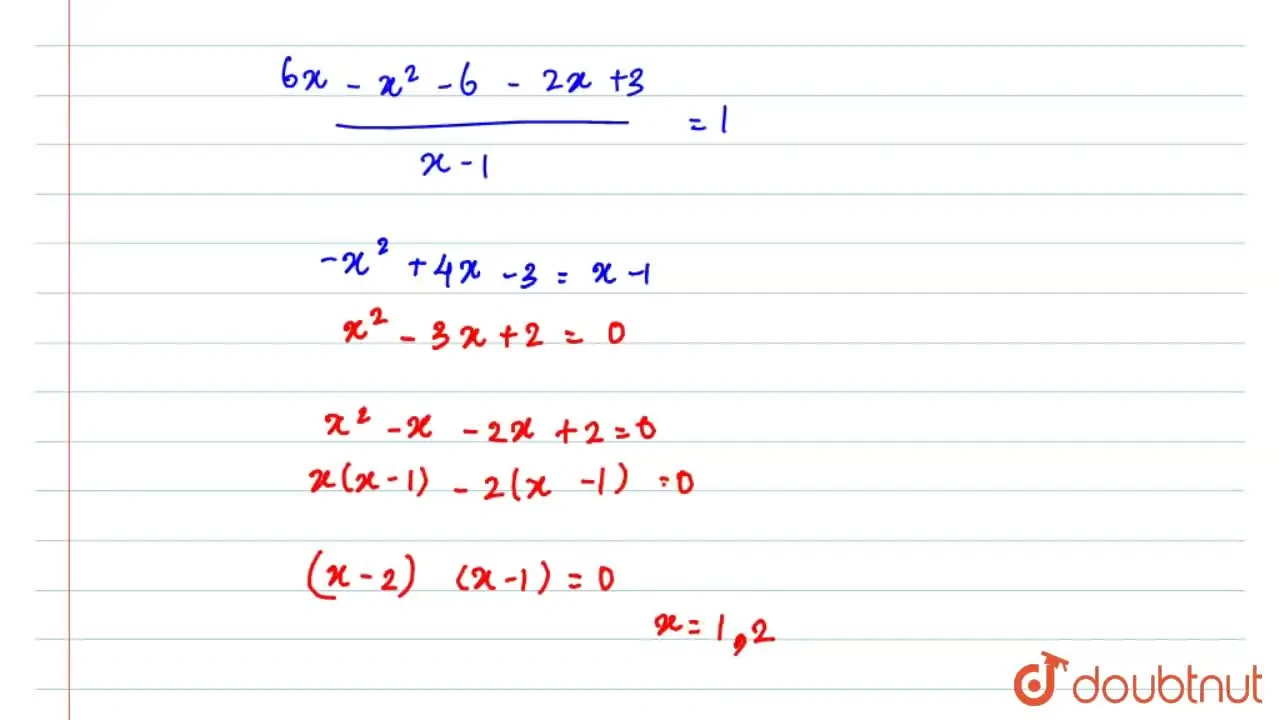 6x - x² - 6 - 2x + 3
= 1
x - 1
-x² + 4x - 3 = x - 1
x² - 3x + 2 = 0
x² - x - 2x + 2 = 0
x(x - 1) - 2(x - 1) = 0
(x - 2) (x - 1) = 0
x = 1, 2
doubtnut